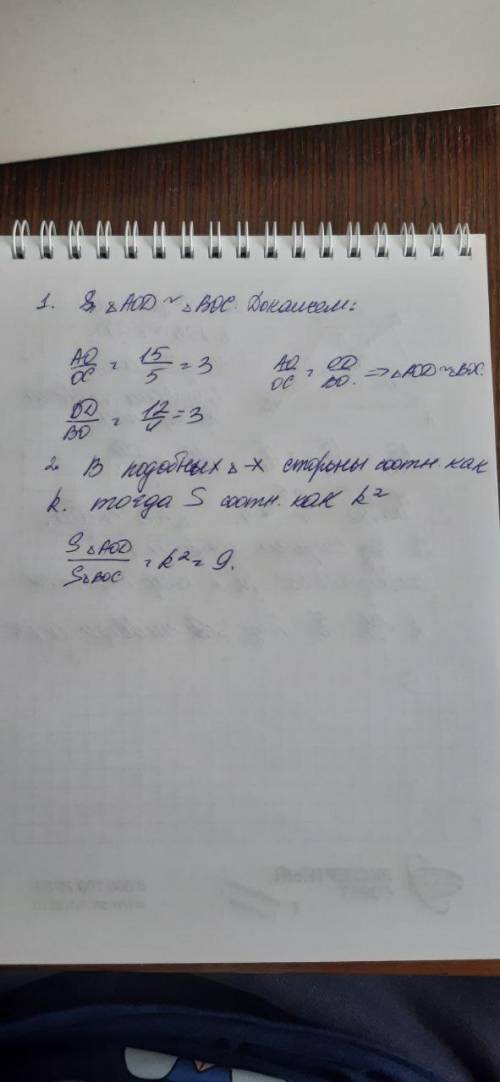 1. △AOD ~ △BOC. Докажем:
AO/OC = 15/5 = 3 AO/OC = OD/BO. => △AOD ~ △BOC.
OD/BO = 12/4 = 3
2. В подобных △-х стороны соотн. как
k. тогда S соотн. как k²
S△AOD/S△BOC = k² = 9.